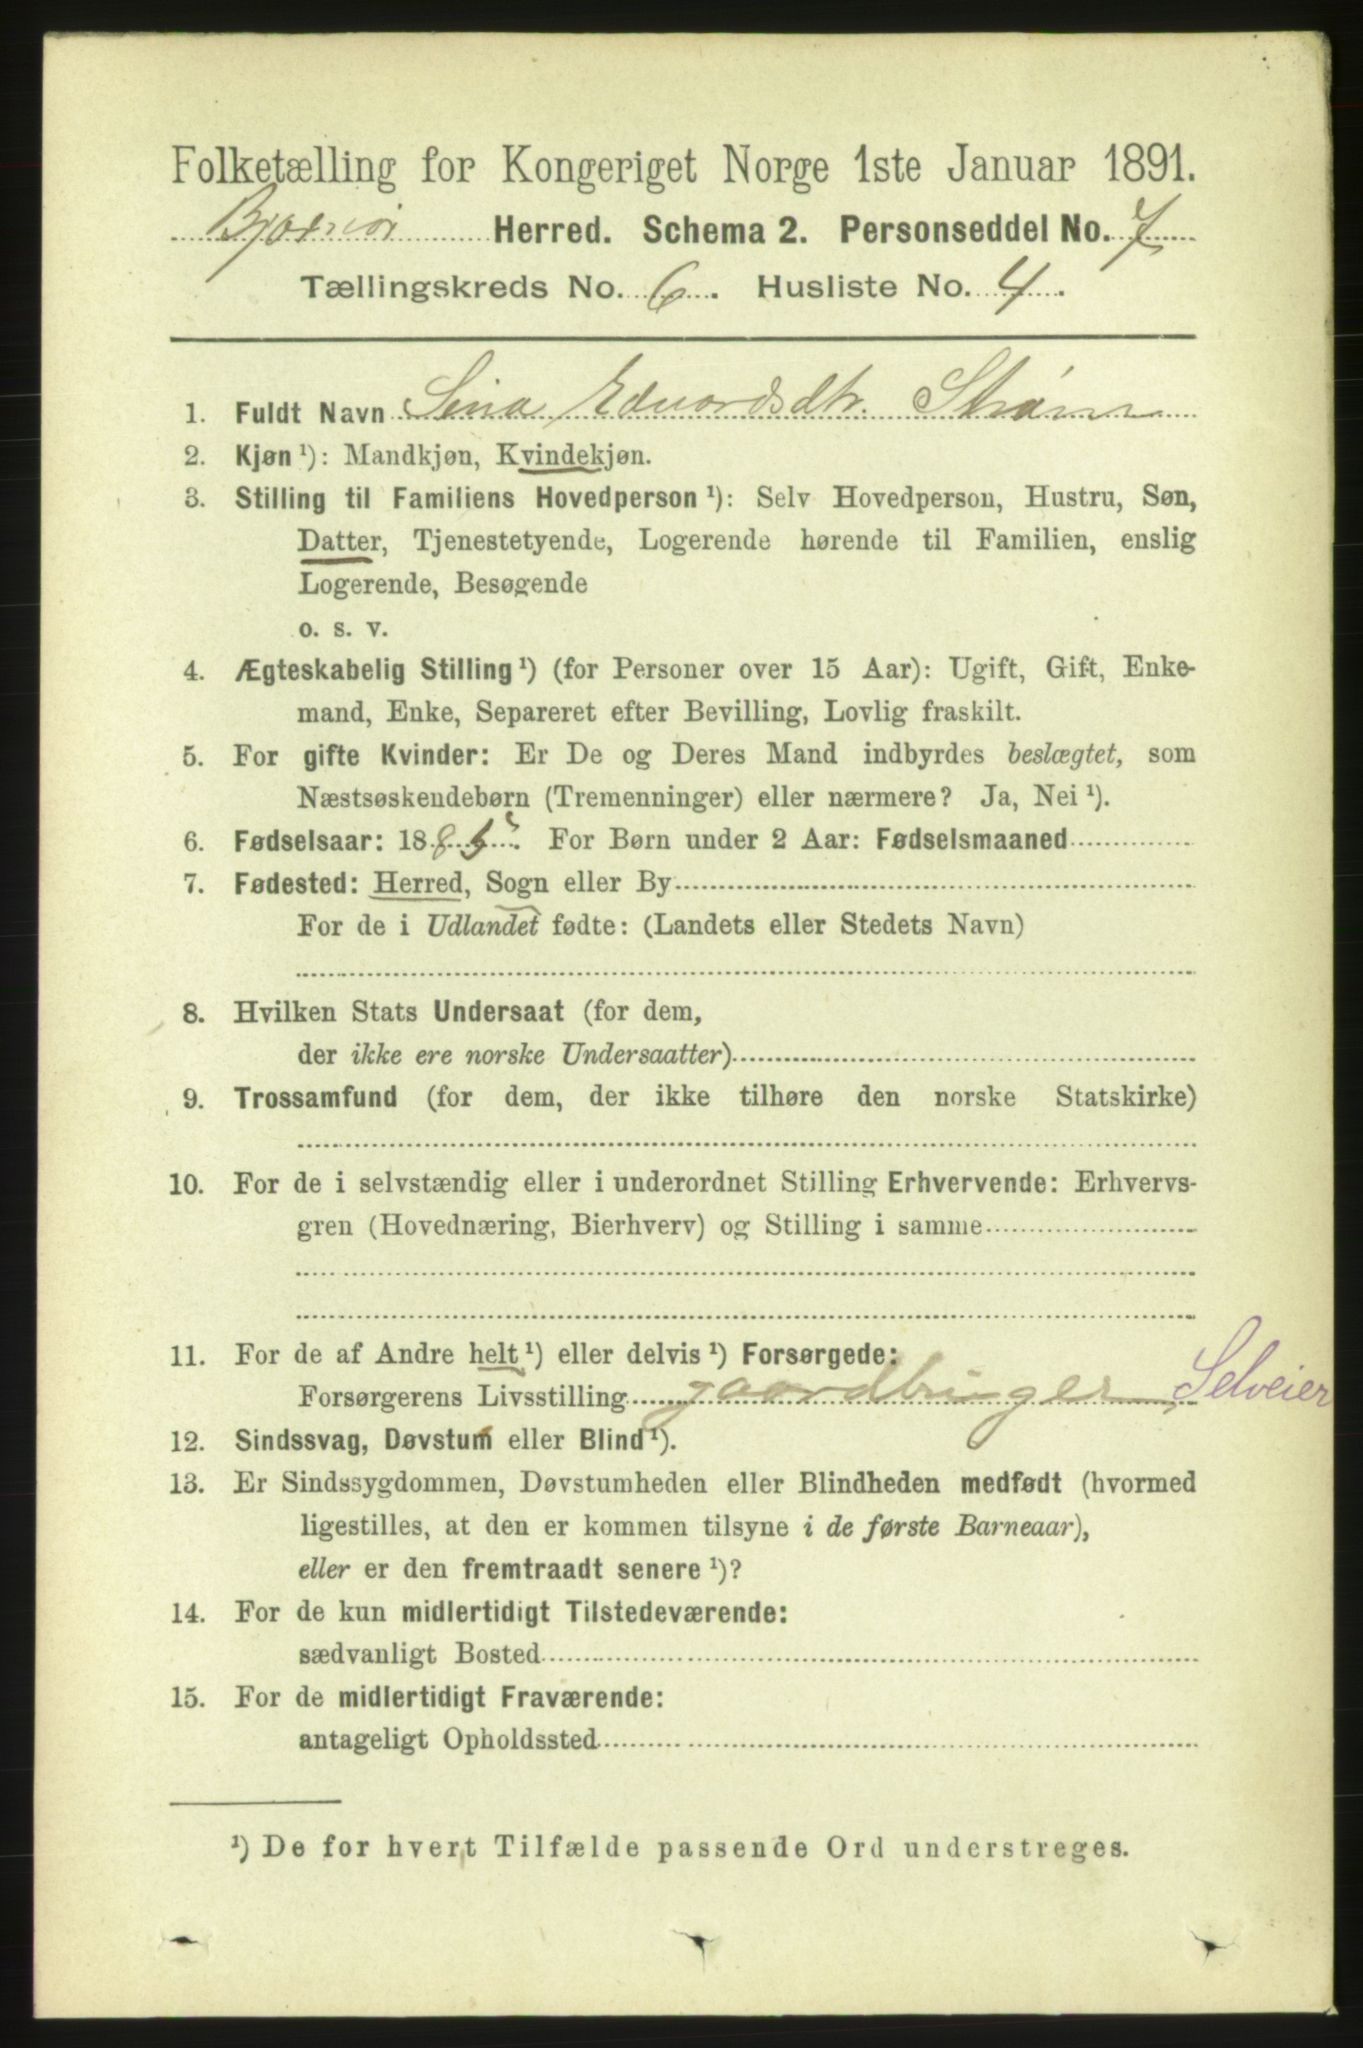 Folketælling for Kongeriget Norge 1ste Januar 1891.
Bjørnør Herred. Schema 2. Personseddel No. 7
Tællingskreds No. 6. Husliste No. 4.
1. Fuldt Navn Sina Edvardsdtr. Strøm
2. Kjøn ¹): Mandkjøn, Kvindekjøn.
3. Stilling til Familiens Hovedperson ¹): Selv Hovedperson, Hustru, Søn,
Datter, Tjenestetyende, Logerende hørende til Familien, enslig
Logerende, Besøgende
o. s. v.
4. Ægteskabelig Stilling ¹) (for Personer over 15 Aar): Ugift, Gift, Enke-
mand, Enke, Separeret efter Bevilling, Lovlig fraskilt.
5. For gifte Kvinder: Er De og Deres Mand indbyrdes beslægtet, som
Næstsøskendebørn (Tremenninger) eller nærmere? Ja, Nei ¹).
6. Fødselsaar: 1885. For Børn under 2 Aar: Fødselsmaaned
7. Fødested: Herred, Sogn eller By
For de i Udlandet fødte: (Landets eller Stedets Navn)
8. Hvilken Stats Undersaat (for dem,
der ikke ere norske Undersaatter)
9. Trossamfund (for dem, der ikke tilhøre den norske Statskirke)
10. For de i selvstændig eller i underordnet Stilling Erhvervende: Erhvervs-
gren (Hovednæring, Bierhverv) og Stilling i samme
11. For de af Andre helt ¹) eller delvis ¹) Forsørgede:
Forsørgerens Livsstilling gaardbruger, Selveier
12. Sindssvag, Døvstum eller Blind ¹).
13. Er Sindssygdommen, Døvstumheden eller Blindheden medfødt (hvormed
ligestilles, at den er kommen tilsyne i de første Barneaar),
eller er den fremtraadt senere ¹)?
14. For de kun midlertidigt Tilstedeværende:
sædvanligt Bosted
15. For de midlertidigt Fraværende:
antageligt Opholdssted
¹) De for hvert Tilfælde passende Ord understreges.